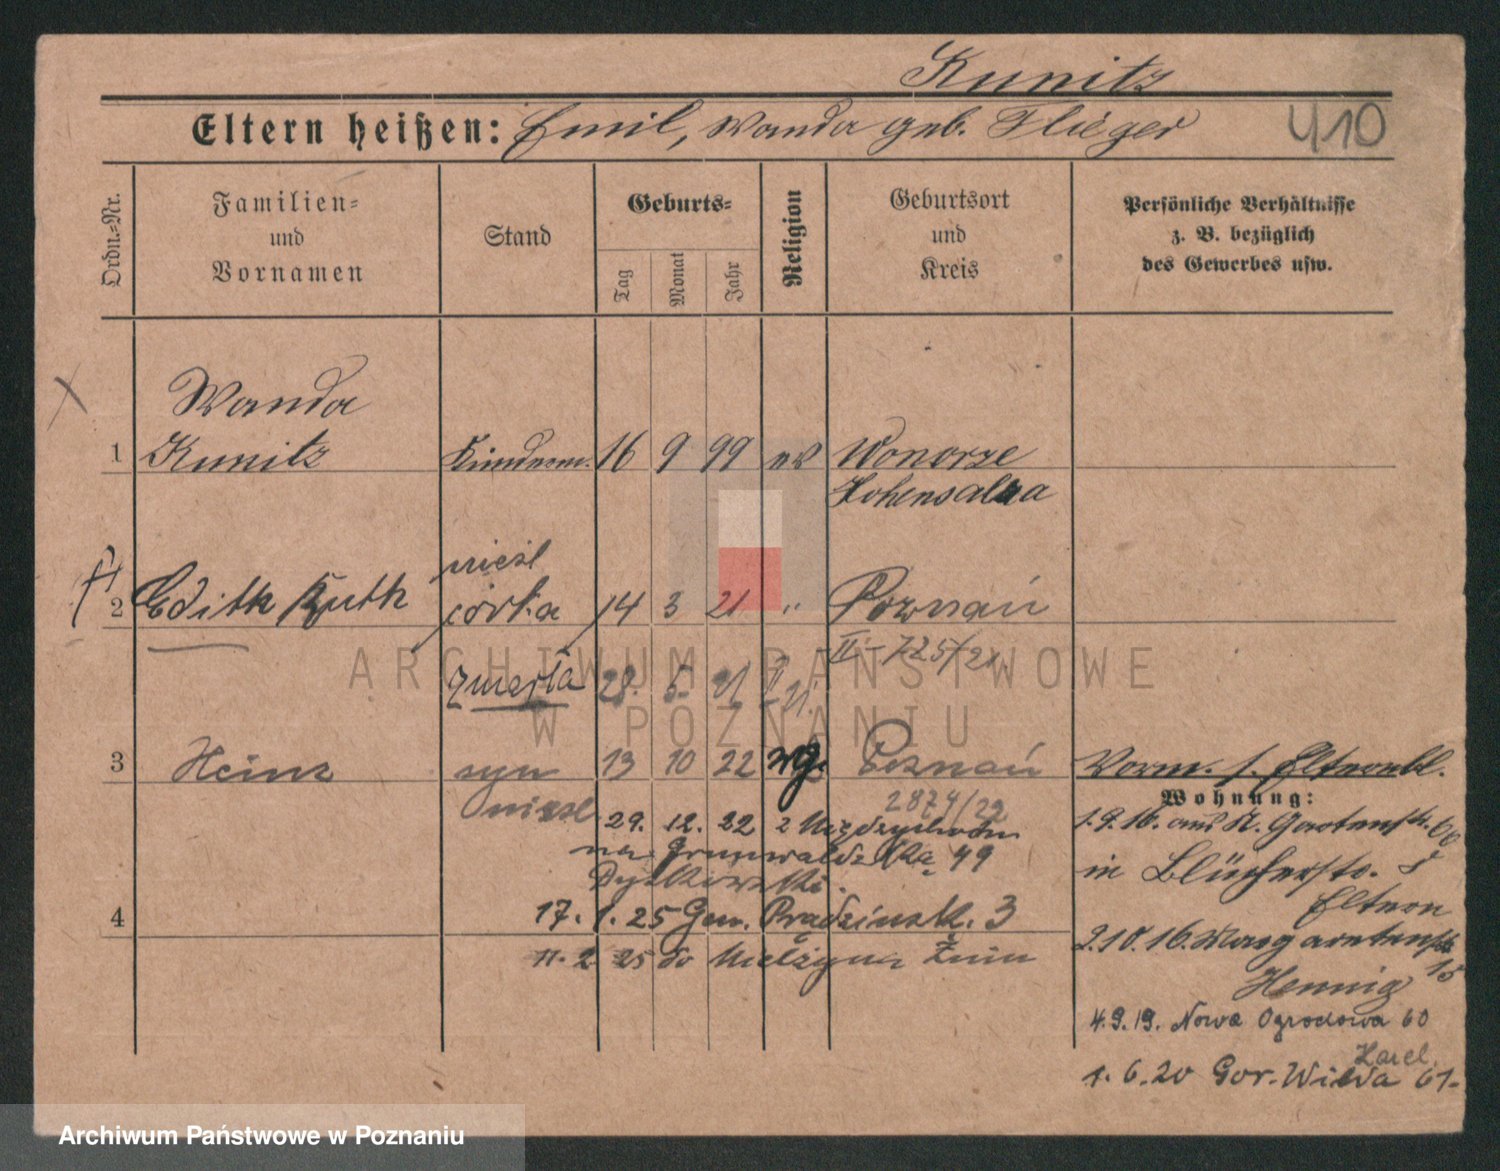 Kunitz
Eltern heißen: Emil, Wanda geb. Flieger
410
Ordn.-Nr.
Familien-
und
Vornamen
Stand
Geburts-
Tag
Monat
Jahr
Religion
Geburtsort
und
Kreis
Persönliche Verhältnisse
z. B. bezüglich
des Gewerbes usw.
Wanda
1 Kunitz 16 9 99 ev Wonorze
Hohensalza
nieśl
2 Edith Ruth córka 14 3 21 " Poznań
II - 725/21
zmarła 28. 5. 21
3 Heinz syn 13 10 22 Poznań
nieśl 2874/22
Vorm. s. Elternbl.
Wohnung:
29. 12. 22 z Międzychodu
na Grunwaldzka 49
1.9.16. aus N. Gartenstr. 60
in Blücherstr. 8
Eltern
4 17. 1. 25 Gen. Prądzińsk. 3
11. 2 25 do Żnin
2.10.16. Margaretenstr
15
Hennig
4.9.19. Nowa Ogrodowa 60
1. 6. 20 Gór. Wilda 61
ARCHIWUM PAŃSTWOWE
W POZNANIU
Archiwum Państwowe w Poznaniu